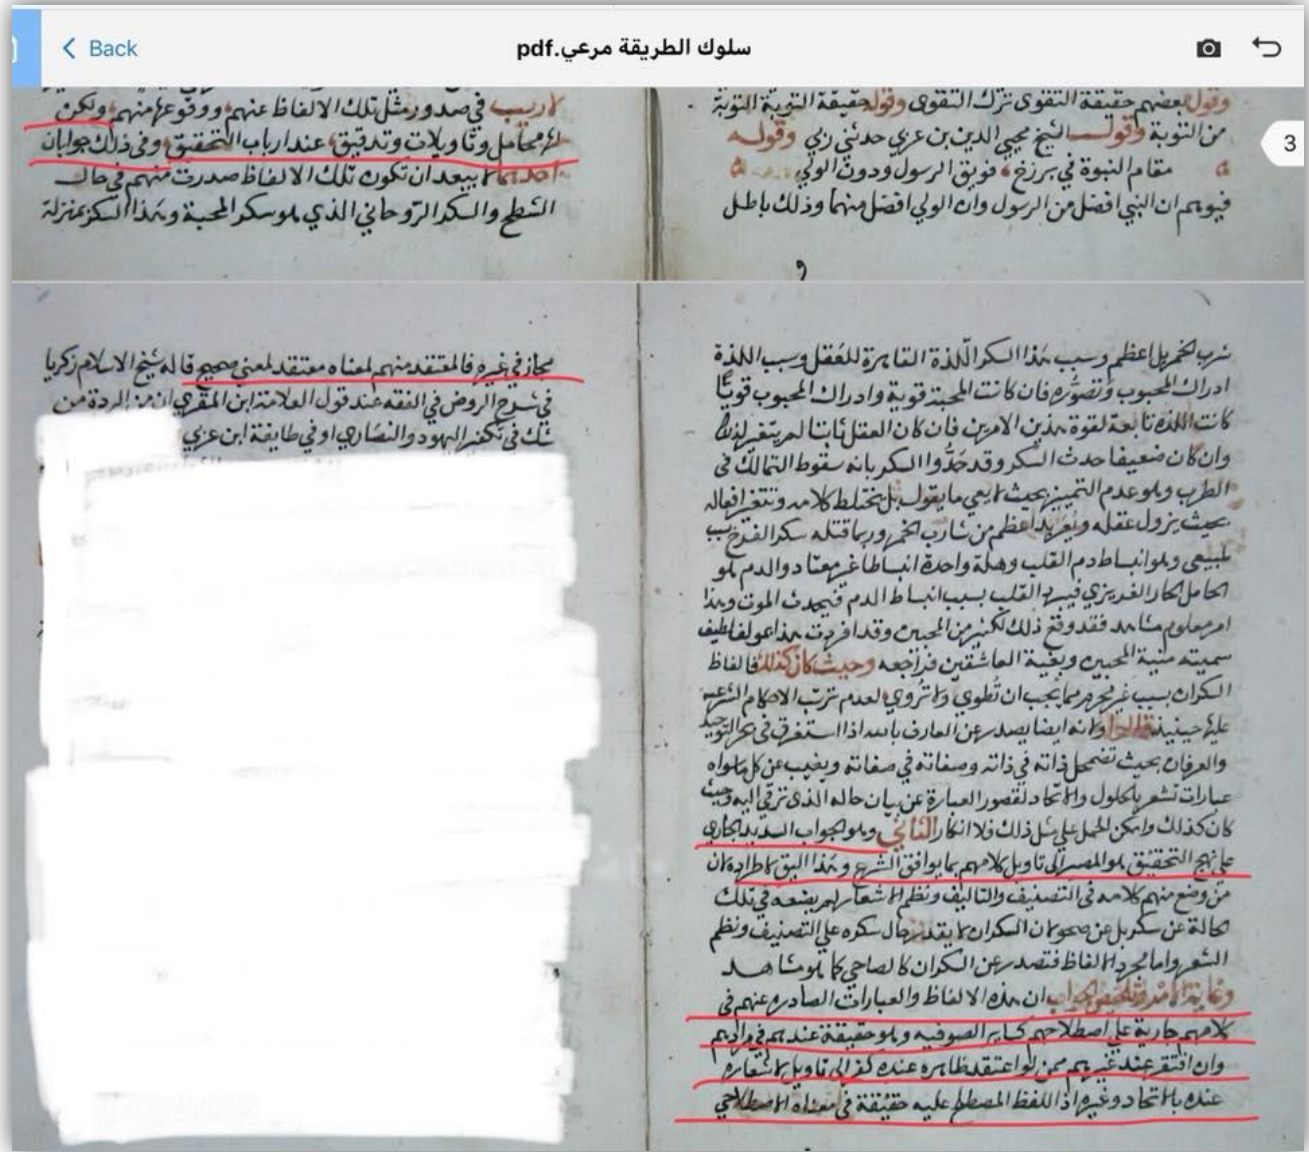 Back
سلوك الطريقة مرعي.pdf
3
وقول بعضهم حقيقة التقوى ترك التقوى وقوله حقيقة التوبة التوبة
من التوبة وقول الشيخ محيي الدين بن عربي حدثني ربي وقوله
مقام النبوة في برزخ فويق الرسول ودون الولي
فيوهم ان النبي افضل من الرسول وان الولي افضل منهما وذلك باطل
و
لاريب في صدور مثل تلك الالفاظ عنهم ووقوعها منهم ولكن
لها محامل وتاويلات وتدقيق عند ارباب التحقيق وفي ذلك جوابان
احدهما لا يبعد ان تكون تلك الالفاظ صدرت منهم في حال
الشطح والسكر الروحاني الذي هو سكر المحبة وهذا السكر بمنزلة
شرب الخمر بل اعظم وسبب هذا السكر اللذة القاهرة للعقل وسبب اللذة
ادراك المحبوب وتصوره فان كانت المحبة قوية وادراك المحبوب قويا
كانت اللذة تابعة لقوة هذين الامرين فان كان العقل ثابتا لم يتغير لذلك
وان كان ضعيفا حدث السكر وقد حدوا السكر بانه سقوط التمالك في
الطرب وهو عدم التمييز بحيث لا يعي ما يقول بل يختلط كلامه وتتغير افعاله
بحيث يزول عقله ويعربد اعظم من شارب الخمر وربما قتله سكر الفرح بسبب
طبيعي وهو انبساط دم القلب وهلة واحدة انبساطا غير معتاد والدم هو
الحامل الحار الغريزي فيبرد القلب بسبب انبساط الدم فيحدث الموت وهذا
امر معلوم مشاهد فقد وقع ذلك لكثير من المحبين وقد افردت هذا بمولف لطيف
سميته منية المحبين وبغية العاشقين فراجعه وحيث كان كذلك فالفاظ
السكران بسبب غير محرم مما يجب ان تطوى ولا تروى لعدم ترتب الاحكام الشرعية
عليها حينيذ قالوا ولانه ايضا يصدر عن العارف بالله اذا استغرق في بحر التوحيد
والعرفان بحيث تضمحل ذاته في ذاته وصفاته في صفاته ويغيب عن كل ما سواه
عبارات تشعر بالحلول والاتحاد لقصور العبارة عن بيان حاله الذي ترقى اليه وحيث
كان كذلك وامكن الحمل على مثل ذلك فلا انكار الثاني وهو الجواب السديد الجاري
على نهج التحقيق هو المصير الى تاويل كلامهم بما يوافق الشرع وهذا اليق لاطراده لان
من وضع منهم كلامه في التصنيف والتاليف ونظم الاشعار لم يضعه في تلك
الحالة عن سكر بل عن صحو لان السكران لا يقدر حال سكره على التصنيف ونظم
الشعر واما مجرد الالفاظ فتصدر عن السكران كالصاحي كما هو مشاهد
وغاية الامر وتلخيص الجواب ان هذه الالفاظ والعبارات الصادره عنهم في
كلامهم جارية على اصطلاحهم كساير الصوفيه وهو حقيقة عندهم في مرادهم
وان افتقر عند غيرهم ممن لو اعتقد ظاهره عنده كفر الى تاويل لاشعاره
عنده بالاتحاد وغيره اذ اللفظ المصطلح عليه حقيقة في معناه الاصطلاحي
مجاز في غيره فالمعتقد منهم لمعناه معتقد لمعنى صحيح قاله شيخ الاسلام زكريا
في شرح الروض في الفقه عند قول العلامة ابن المقري ان من الردة من
شك في تكفير اليهود والنصارى او في طايفة ابن عربي